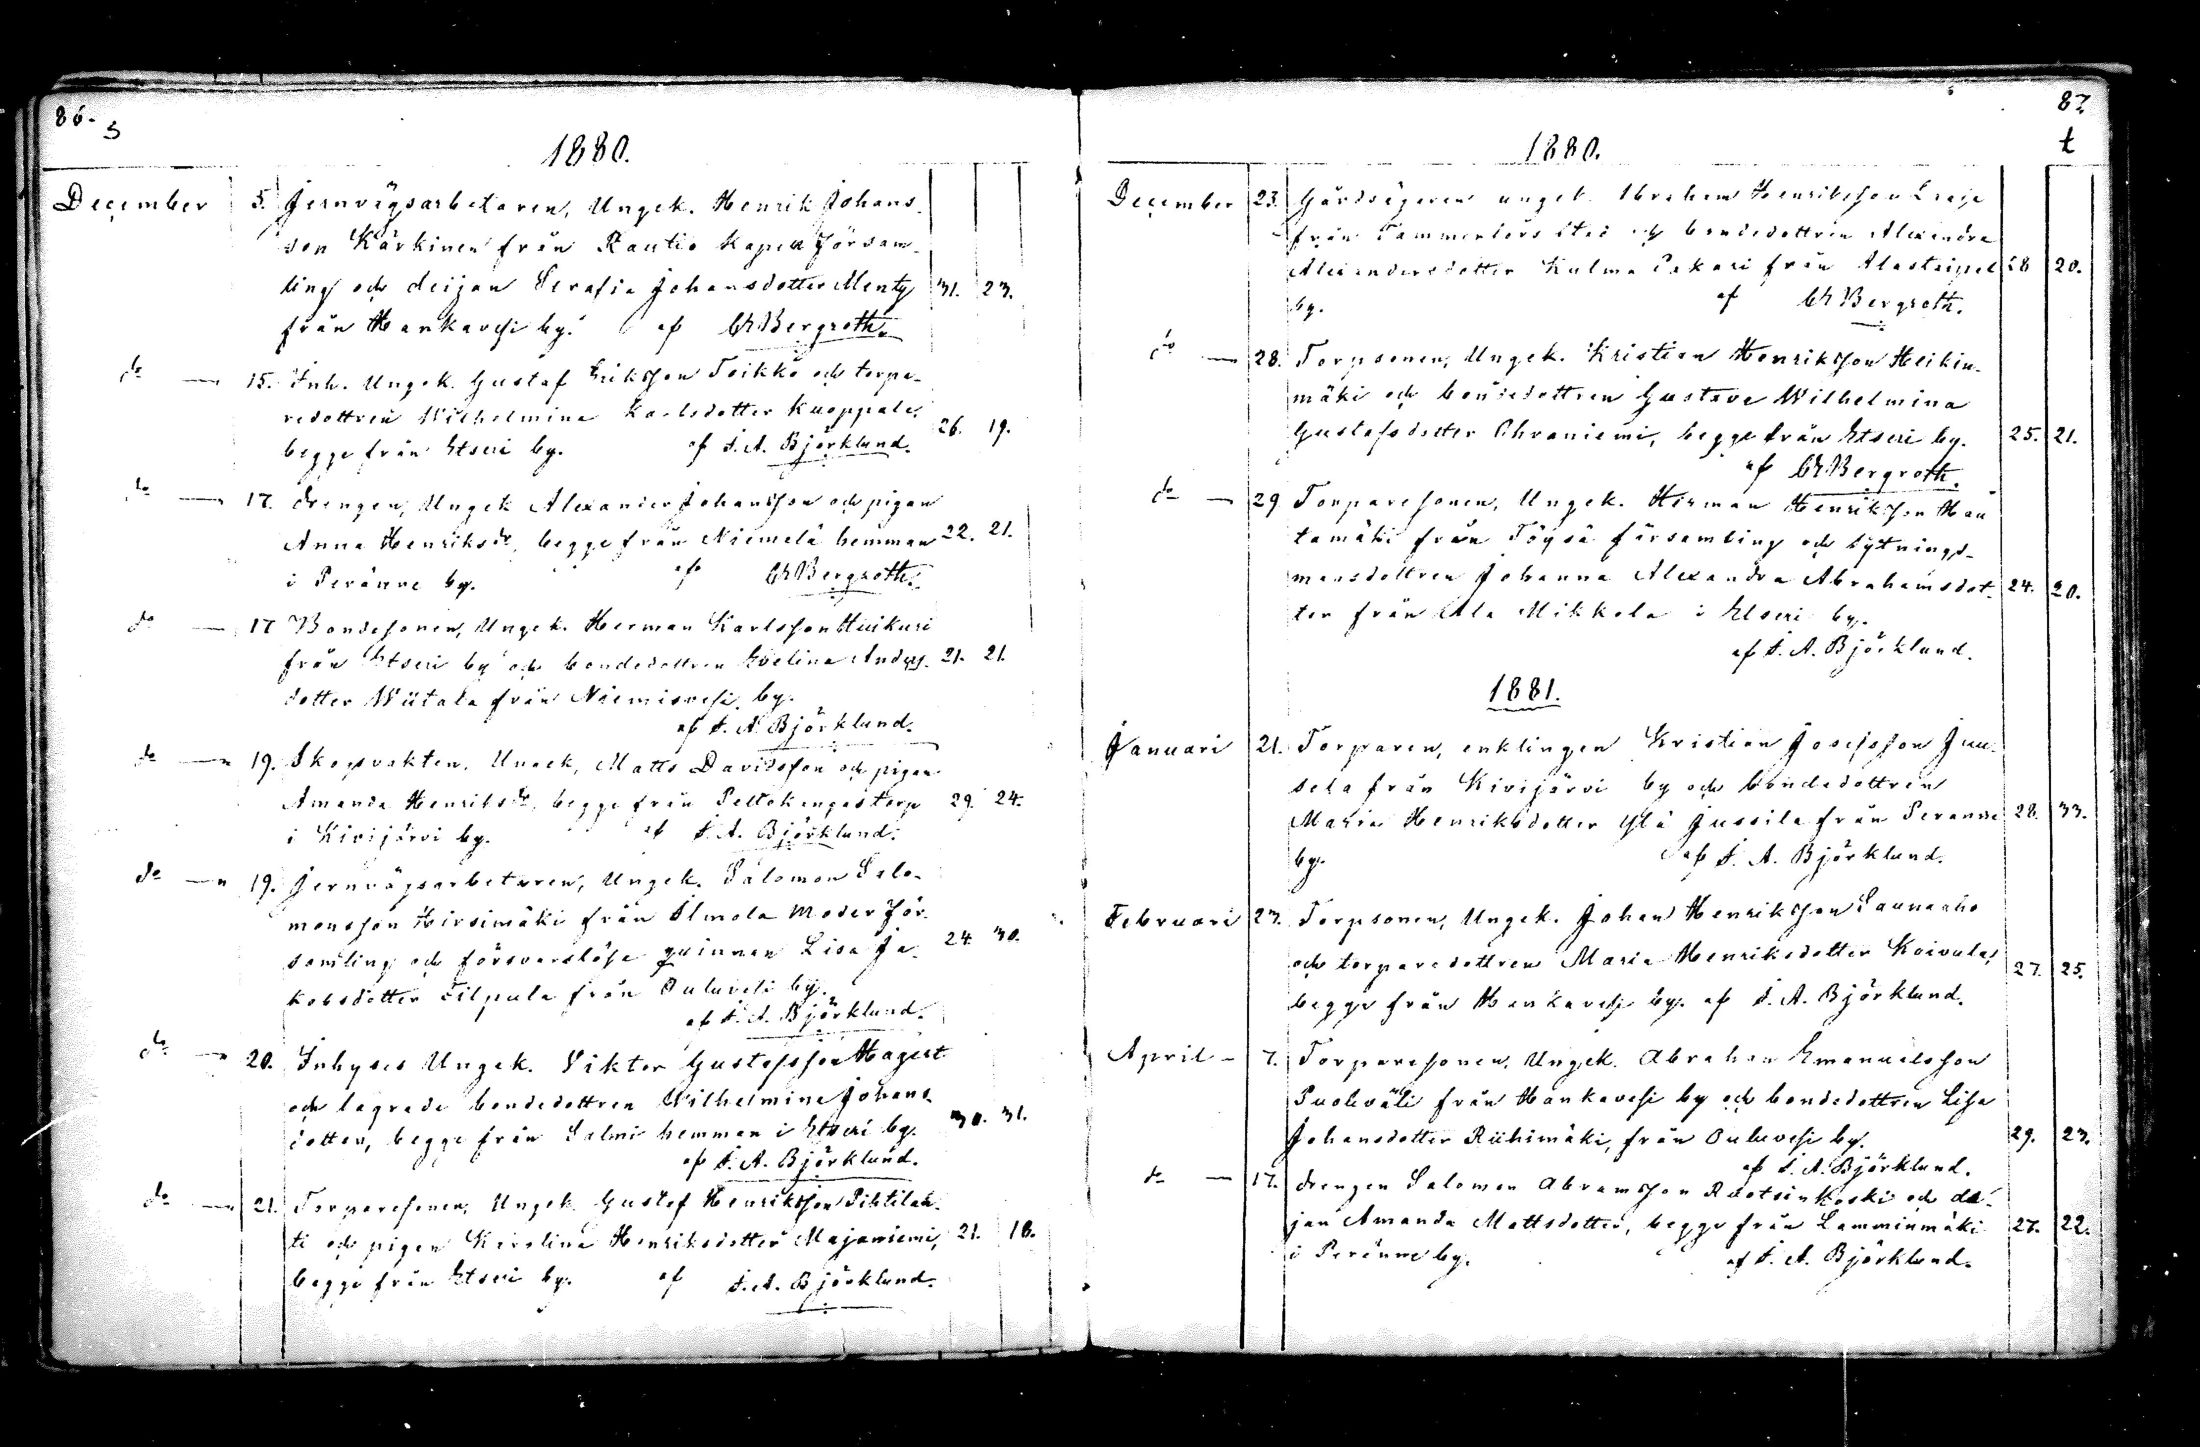 86.
S
1880.
December 5. Jernvägsarbetaren, Ungek. Henrik Johans-
son Kärkinen från Rautio Kapell Försam-
ling och deijan Serafia Johansdotter Menty 31. 23.
från Hankavesi by. af Ch Bergroth.
do — 15. Inh. Ungek. Gustaf Eriksson Toikko och torpa-
redottren Wilhelmina Karlsdotter Kuoppala,
begge från Etseri by. af F. A. Björklund. 26. 19.
do — 17. drengen, Ungek Alexander Johansson och pigan
Anna Henriksdr, begge från Niemelä hemman 22. 21.
i Peränne by. af Ch Bergroth.
do — 17 Bondesonen, Ungek. Herman Karlsson Huikuri
från Etseri by och bondedottren Evelina Anders- 21. 21.
dotter Wiitala från Niemisvesi by.
af F. A. Björklund.
do — 19. Skogsvakten, Ungek, Matts Davidsson och pigan
Amanda Henriksdr, begge från Peltokangas torp 29. 24.
i Kivijärvi by. af F. A. Björklund.
do — 19. Jernvägsarbetaren, Ungek. Salomon Salo-
monsson Hirsimäki från Ilmola Moder För-
samling och försvarslösa quinnan Lisa Ja- 24 30.
kobsdotter Filpula från Ouluvesi by.
af F. A. Björklund.
do — 20. Inhyses Ungek. Viktor Gustafsson
och lagrade bondedottren Wilhelmina Johans-
dotter, begge från Salmi hemman i Etseri by. 30. 31.
af F. A. Björklund.
do — 21. Torparesonen, Ungek. Gustaf Henriksson Pihtilah-
ti och pigan Karolina Henriksdotter Majaniemi, 21. 18.
begge från Etseri by. af F. A. Björklund.
87
t
1880.
December 23. Gårdsägaren ungek. Abraham Henriksson
från Tammerfors Stad och bondedottren Alexandra
Alexandersdotter Kulma Pakari från Alastaipal 28 20.
by. af Ch Bergroth.
do — 28. Torpsonen, Ungek. Kristian Henriksson Heikin-
mäki och bondedottren Gustava Wilhelmina
Gustafsdotter Ohraniemi, begge från Etseri by. 25. 21.
af Ch Bergroth.
do — 29 Torparesonen, Ungek. Herman Henriksson Hau-
tamäki från Töysä församling och bytnings-
mansdottren Johanna Alexandra Abrahamsdot- 24. 20.
ter från Ala Mikkola i Etseri by.
af F. A. Björklund.
1881.
Januari 21. Torparen, enklingen Kristian Josefsson Juu-
sela från Kivijärvi by och bondedottren
Maria Henriksdotter Ylä Jussila från Peranne 28. 33.
by. af F. A. Björklund.
Februari 27. Torpsonen, Ungek. Johan Henriksson Saunaaho
och torparedottren Maria Henriksdotter Koivula, 27. 25.
begge från Hankavesi by. af F. A. Björklund.
April — 7. Torparesonen, Ungek. Abraham Emanuelsson
Puoliväli från Hankavesi by och bondedottren Lisa
Johansdotter Riihimäki, från Ouluvesi by. 29. 23.
af F. A. Björklund.
do — 17. drengen Salomon Abramsson Ruotsinkoski och de-
jan Amanda Mattsdotter, begge från Lamminmäki 27. 22.
i Peränne by. af F. A. Björklund.